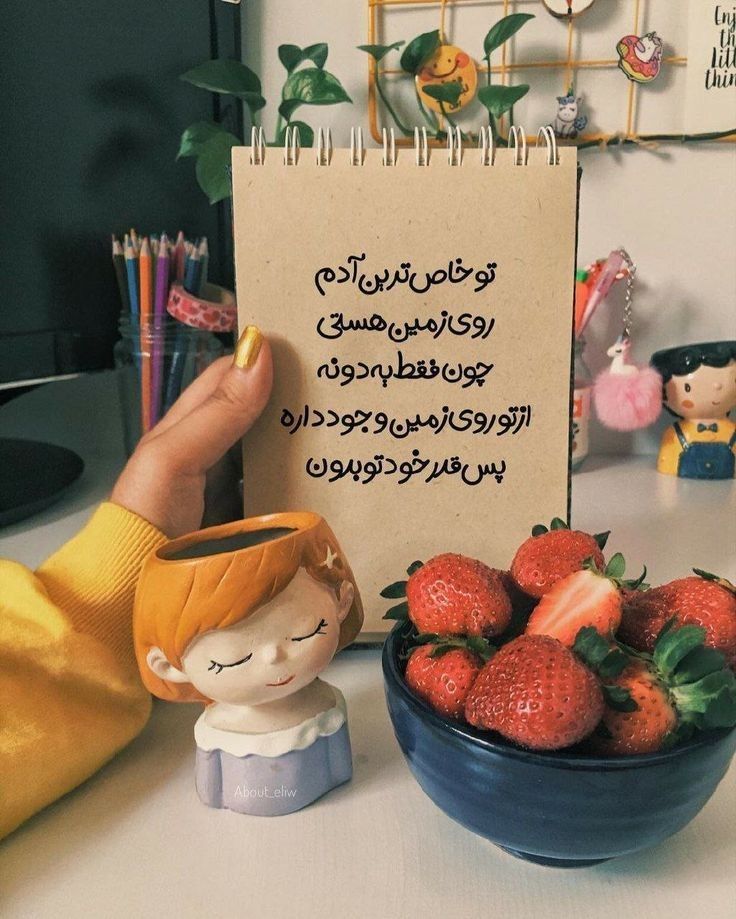 Enjoy
the
Little
thin
تو خاص ترین آدم
روی زمین هستی
چون فقط یه دونه
از تو روی زمین وجود داره
پس قدر خودتو بدون
About_eliw